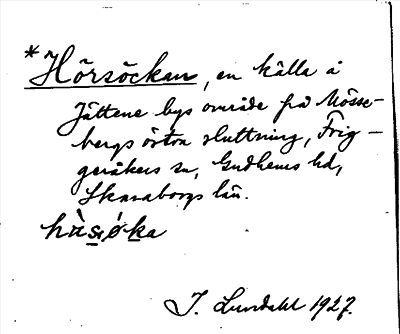 *Hörsöckan, en källa å
Jättene bys område på Mösse-
bergs östra sluttning, Frig-
geråkers sn, Gudhems hd,
Skaraborgs län.
hὰsøka
J. Lundahl 1927.